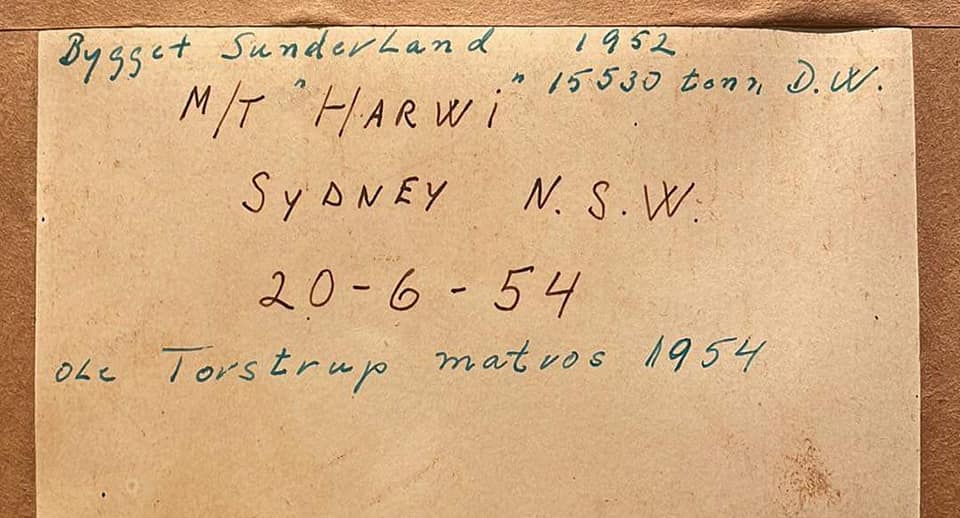 Bygget Sunderland 1952
15530 tonn D.W.
M/T "HARWI"
SYDNEY N.S.W.
20-6-54
OLE Torstrup matros 1954